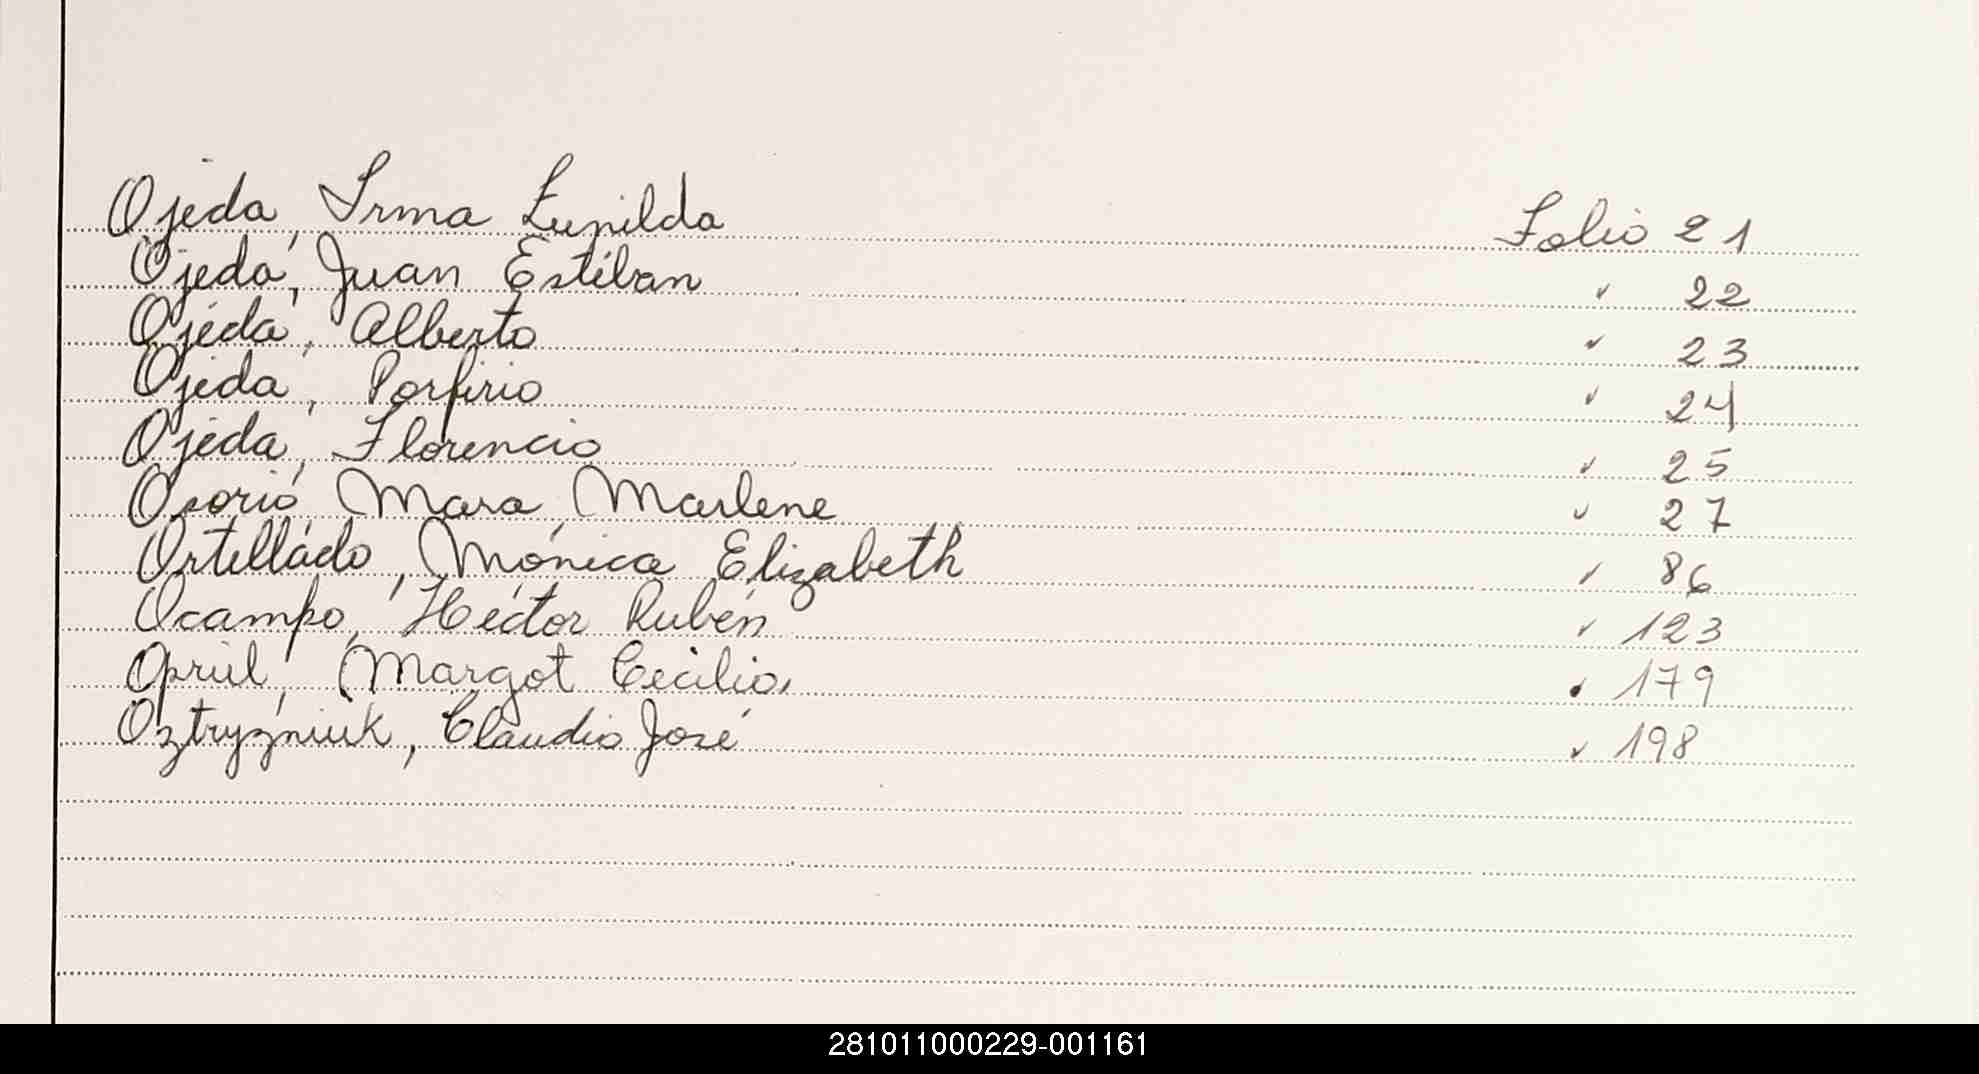 Ojeda, Irma Lunilda Folio 21
Ojeda, Juan Estéban " 22
Ojeda, Alberto " 23
Ojeda, Porfirio " 24
Ojeda, Florencio " 25
Osorio, Mara Marlene " 27
Ortellado, Mónica Elizabeth " 86
Ocampo, Héctor Rubén " 123
Opriul, Margot Cecilia, " 179
Oztryzniuk, Claudio José " 198
281011000229-001161